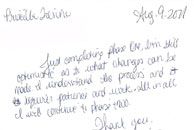 Aug. 9, 2011
Just completing phase One, I'm still
optimistic as to what changes can be
made. I understand the process and it
requires patience and work. All in all
I will continue to phase two.
Thank you,